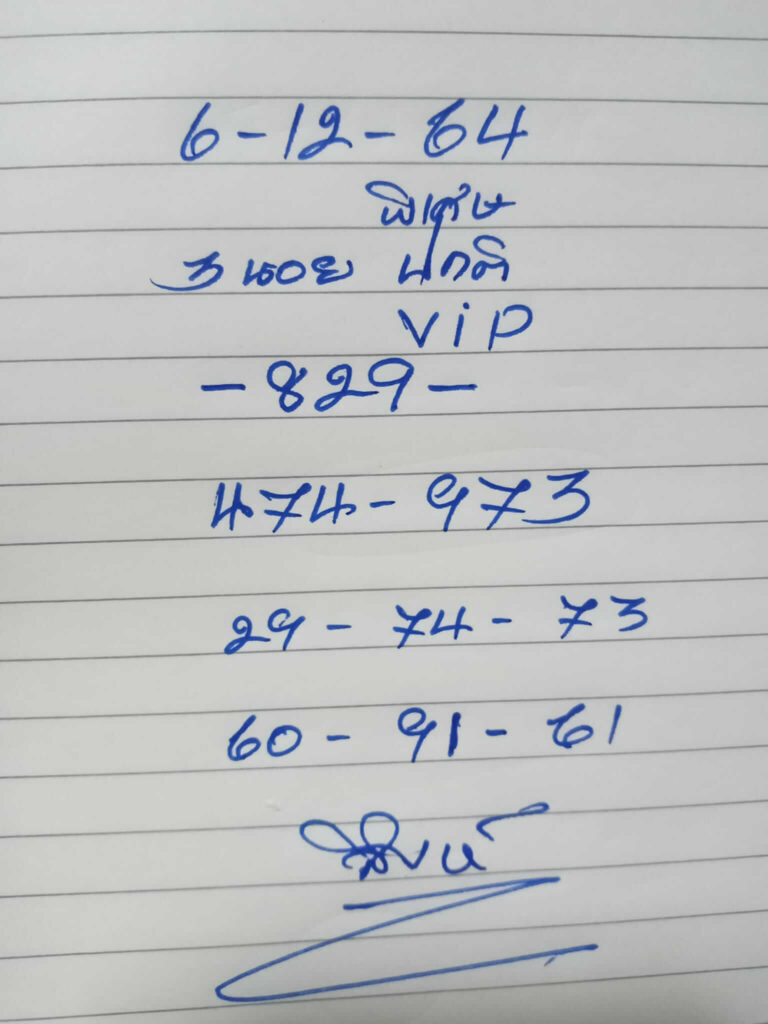 6-12-64
พิเศษ
3 นอย ปกติ
ViP
-829-
474-973
29-74-73
60-91-61